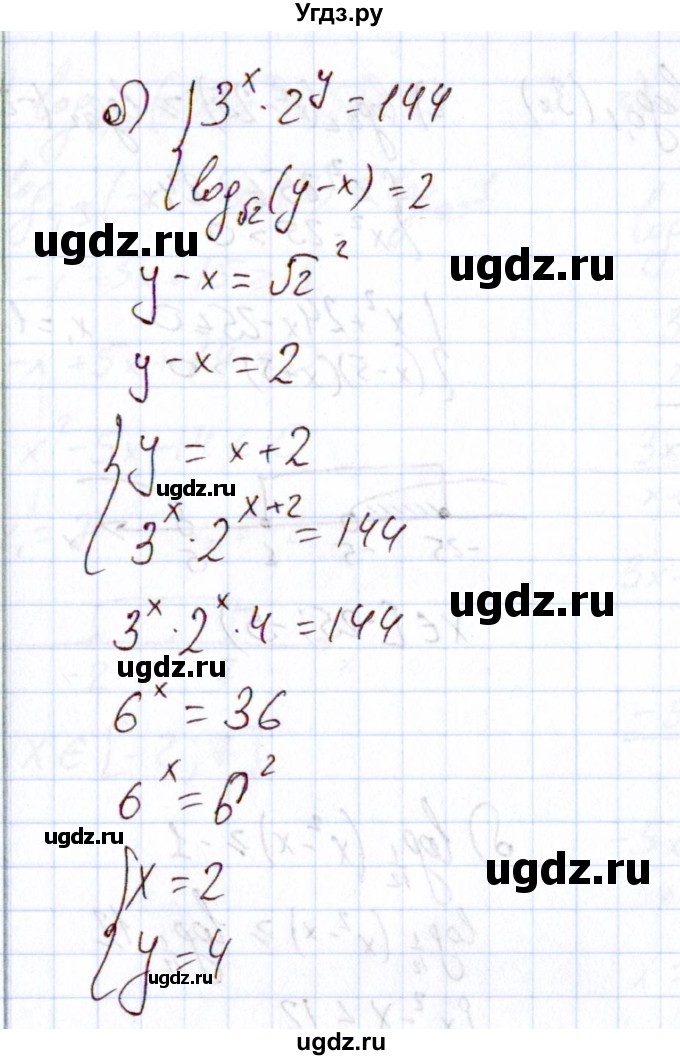 Угдз.ру
б) { 3^x · 2^y = 144
log_√2 (y-x) = 2
ugdz.ru
ugdz.ru
y - x = √2^2
y - x = 2
{ y = x + 2
ugdz.ru
3^x · 2^(x+2) = 144
ugdz.ru
3^x · 2^x · 4 = 144
ugdz.ru
6^x = 36
6^x = 6^2
ugdz.ru
ugdz.ru
{ x = 2
y = 4
ugdz.ru
ugdz.ru